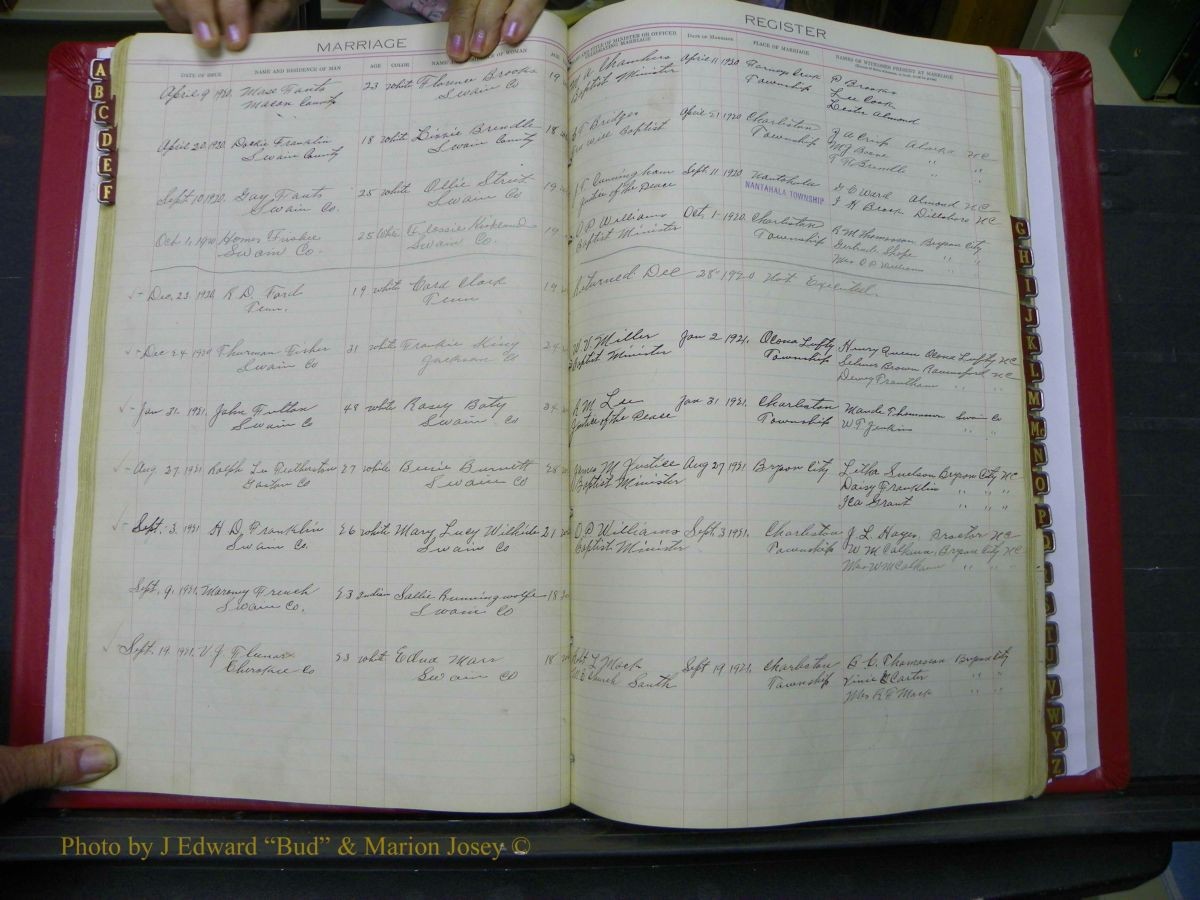 MARRIAGE
DATE OF ISSUE NAME AND RESIDENCE OF MAN AGE COLOR OF WOMAN
April 9 1920, 23 white Florence Brooks 19
Macon County Swain Co
April 20, 1920, Franklin 18 white Lizzie Brendle 18
Swain County Swain County
Sept 10, 1920, Gay 25 white Ollie Street 19
Swain Co. Swain Co
Oct 1, 1920 Homer 25 White Flossie Kirkland 19
Swain Co. Swain Co.
Dec, 23, 1920, R D. Ford 19 white Clark 19
Tenn. Tenn
Dec 24, 1920 Thurman Fisher 31 white Frankie King 24
Swain Co Jackson Co
Jan 31, 1921, John Fulton 48 white Rosey Baty 34
Swain Co Swain Co
Aug, 27, 1921 Ralph Lee Featherston 27 white Burnett 28
Gaston Co Swain Co
Sept. 3, 1921 H D. Franklin 26 white Mary Lucy Wilhide 21
Swain Co. Swain Co
Sept, 9, 1921, Maroney French 23 Indian Sallie Runningwolfe 18
Swain Co. Swain Co
Sept, 19, 1921, V J 23 white Edna Marr 18
Cherokee Co Swain Co
REGISTER
DATE OF MARRIAGE PLACE OF MARRIAGE NAMES OF WITNESSES PRESENT AT MARRIAGE
A Chambers April 11 1920 P Brooks
Baptist Minister Township Lee Cook
Lester Almond
Bridges April 21 1920 Charleston J A Crisp NC
Free will Baptist Township M J Boone " "
Brendle " "
J T Cunningham Sept. 11 1920 Nantahala G C Ward Almond NC
Justice of the Peace NANTAHALA TOWNSHIP J H Brook Dillsboro NC
O P Williams Oct 1- 1920. Charleston R M Thomasson Bryson City
Baptist Minister Township Gertrude Shope " "
Mrs O P Williams " "
Returned Dec 28- 1920 Not Executed.
W. V. Miller Jan 2, 1921, Ocona Lufty Henry Queen Ocona Lufty NC
Baptist Minister Township Selmer Brown Ravensford NC
Dewey Prantham " "
R M Lee Jan 31 1921, Charleston Maude Thomasson Swain Co
Justice of the Peace Township W. T. Jenkins " "
James M Justice Aug 27, 1921 Bryson City Bryson City NC
Baptist Minister Daisy Franklin " " "
Ica Grant " " "
O P Williams Sept. 3 1921, Charleston J L Hayes, Proctor NC
Baptist Minister Township W M Calhoun, Bryson City NC
Mrs W M Calhoun " " "
Robt L Mack Sept 19 1921, Charleston B C Thomasson Bryson City
M E Church South Township Vinie Carter " "
Mrs R L Mack " "
A
B
C
D
E
F
G
H
I
J
K
L
M
Mc
N
O
P
Q
R
S
T
U
V
W
Y
Z
Photo by J Edward “Bud” & Marion Josey ©